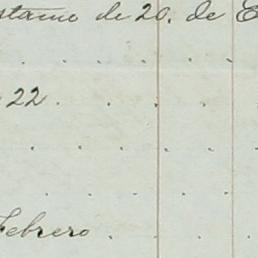 stamo de 20. de E
22
Febrero